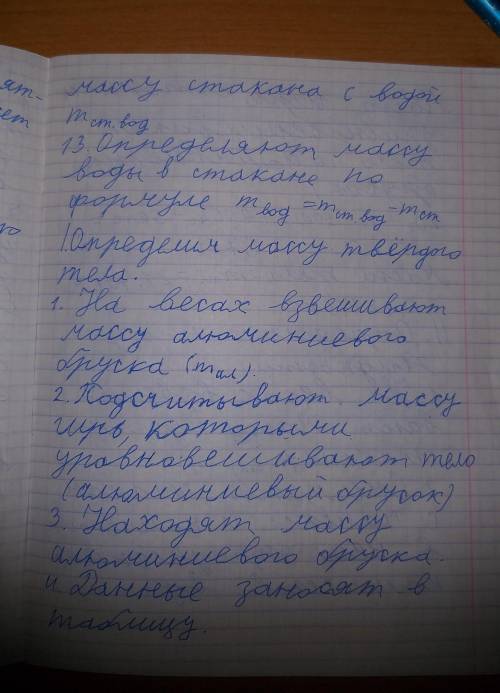 массу стакана с водой
m ст.вод
13. Определяют массу
воды в стакане по
формуле m вод = m ст.вод - m ст.
1. Определим массу твёрдого
тела.
1. На весах взвешивают
массу алюминиевого
бруска (m ал).
2. Подсчитывают массу
гирь, которыми
уровновешивают тело
(алюминиевый брусок)
3. Находят массу
алюминиевого бруска.
4. Данные заносят в
таблицу.